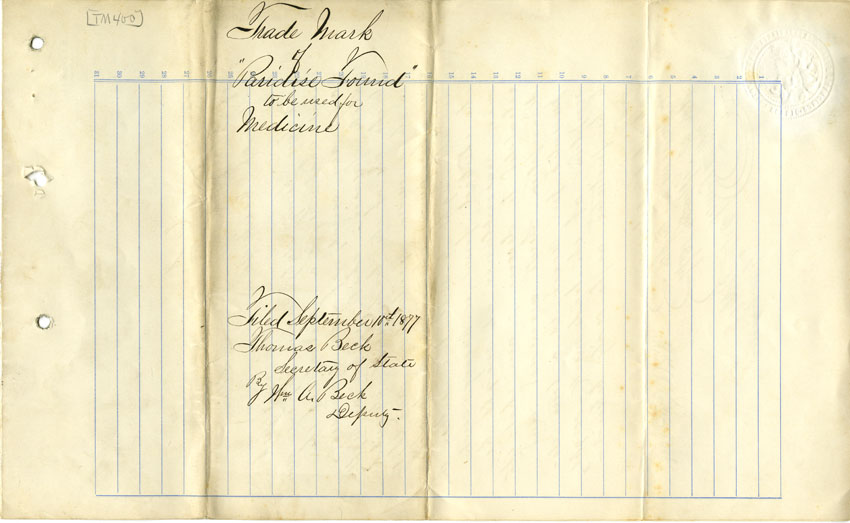 [TM400]
Trade Mark
of
"Paridise Found"
to be used for
Medicine
Filed September 10th 1877
Thomas Beck
Secretary of State
By Wm A. Beck
Deputy.